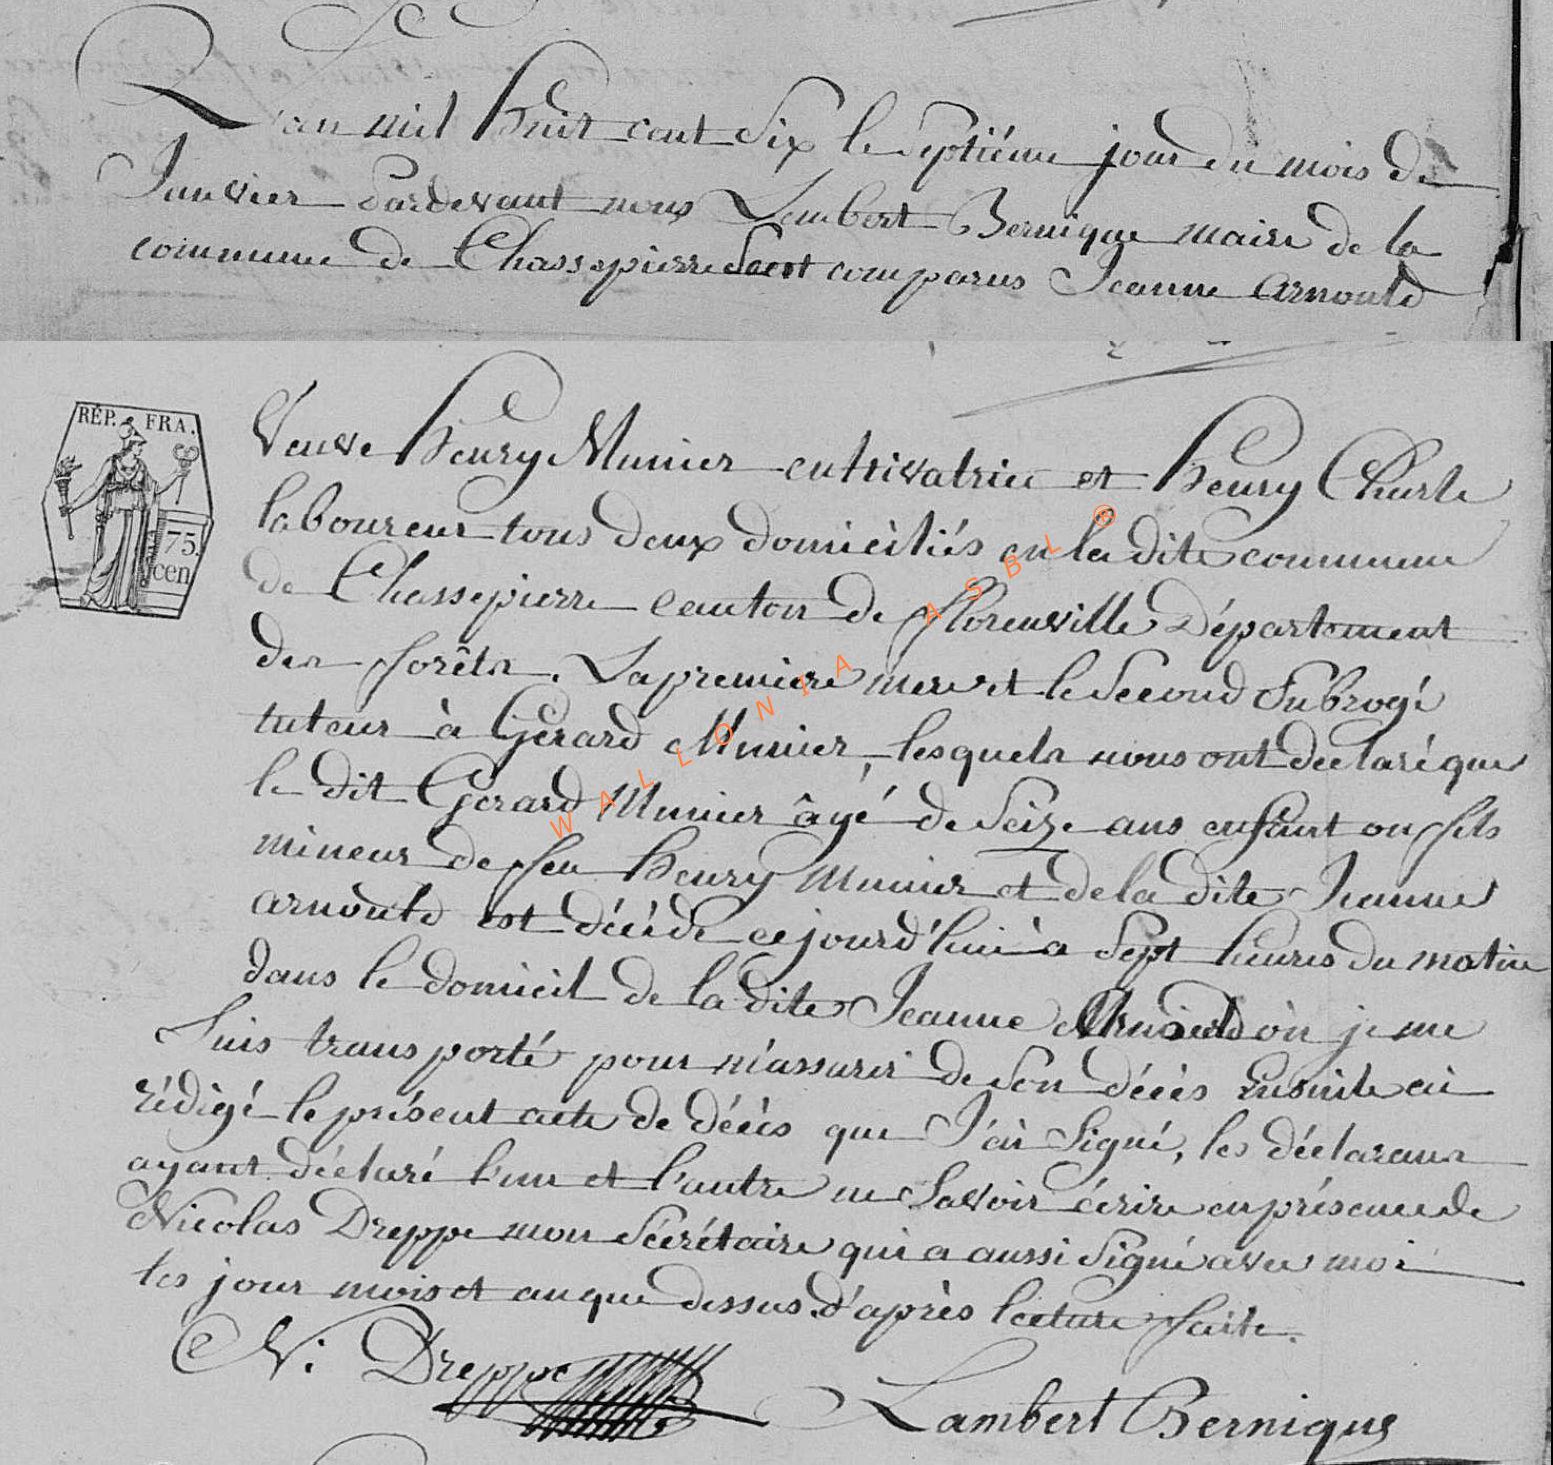 L'an mil huit cent six le septiéme jour du mois de
Janvier pardevant nous Lambert Bernique maire de la
commune de Chassepierre sont comparus Jeanne Arnould
RÉP. FRA.
75.
cen
Veuve henry Munier cultivatrice et henry Charle
laboureur tous deux domiciliés en la dite commune
de Chassepierre canton de florenville Département
des forêts. La premiere mere et le second subrogé
tuteur à Gérard Munier, lesquels nous ont declaré que
le dit Gerard Munier âgé de seize ans enfant ou fils
mineur de feu henry Munier et de la dite Jeanne
arnould est décédé cejourd'hui à sept heures du matin
dans le domicil de la dite Jeanne Arnould où je me
suis transporté pour m'assurer de son décès Ensuite ai
rédigé le présent acte de décès que J'ai signé, les déclarans
ayant déclaré l'un et l'autre ne savoir écrire en présence de
Nicolas Dreppe mon sécrétaire qui a aussi signé avec moi
les jour mois et an que dessus d'après lecture faite.
N: Dreppe
Lambert Bernique
WALLONIA ASBL ®